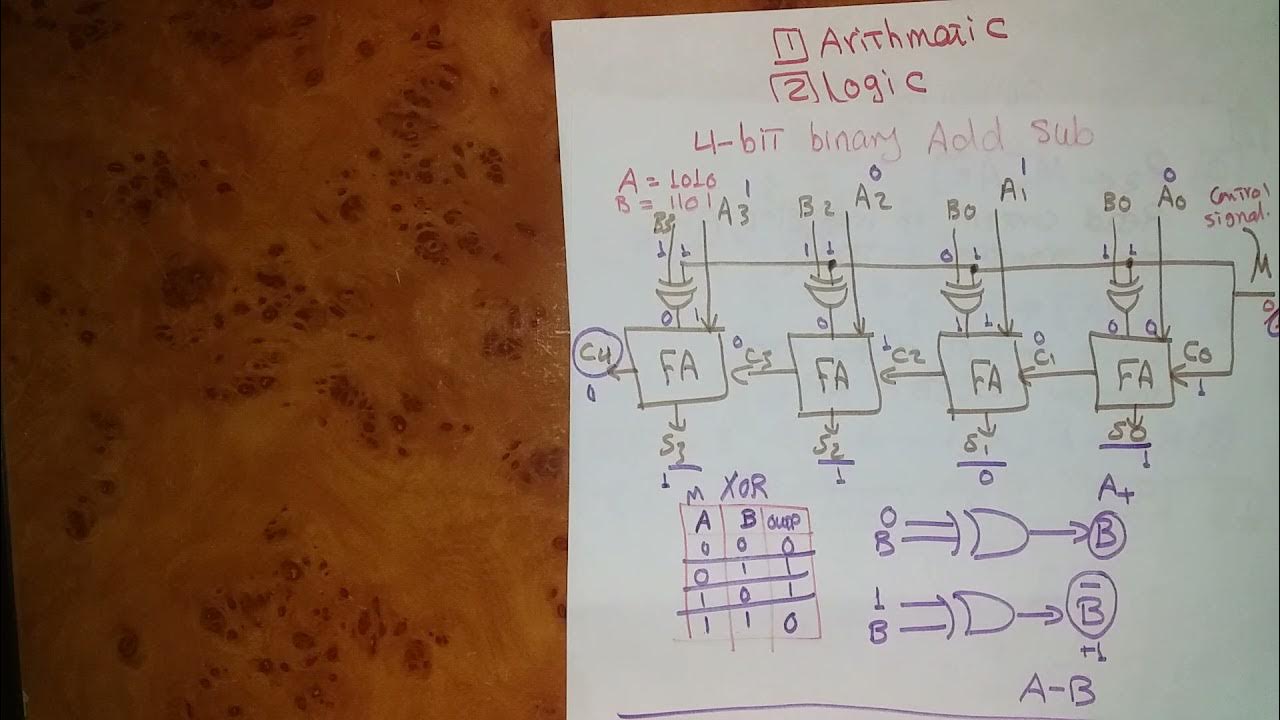 1 Arithmatic
2 Logic
4-bit binary Add Sub
A = 1010
B = 1101
1 0 1 0
B3 A3 B2 A2 B0 A1 B0 A0
control signal.
M
1 1 1 1 0 1 1 1
0 1 0 1 1 0 0
0
C4 FA C3 FA C2 FA C1 FA C0
0 0 1 0 1
S3 S2 S1 S0
1 1 0 1
M XOR
A B outp
0 0 0
0 1 1
1 0 1
1 1 0
A+
0
B B
1
B B̅
+1
A-B